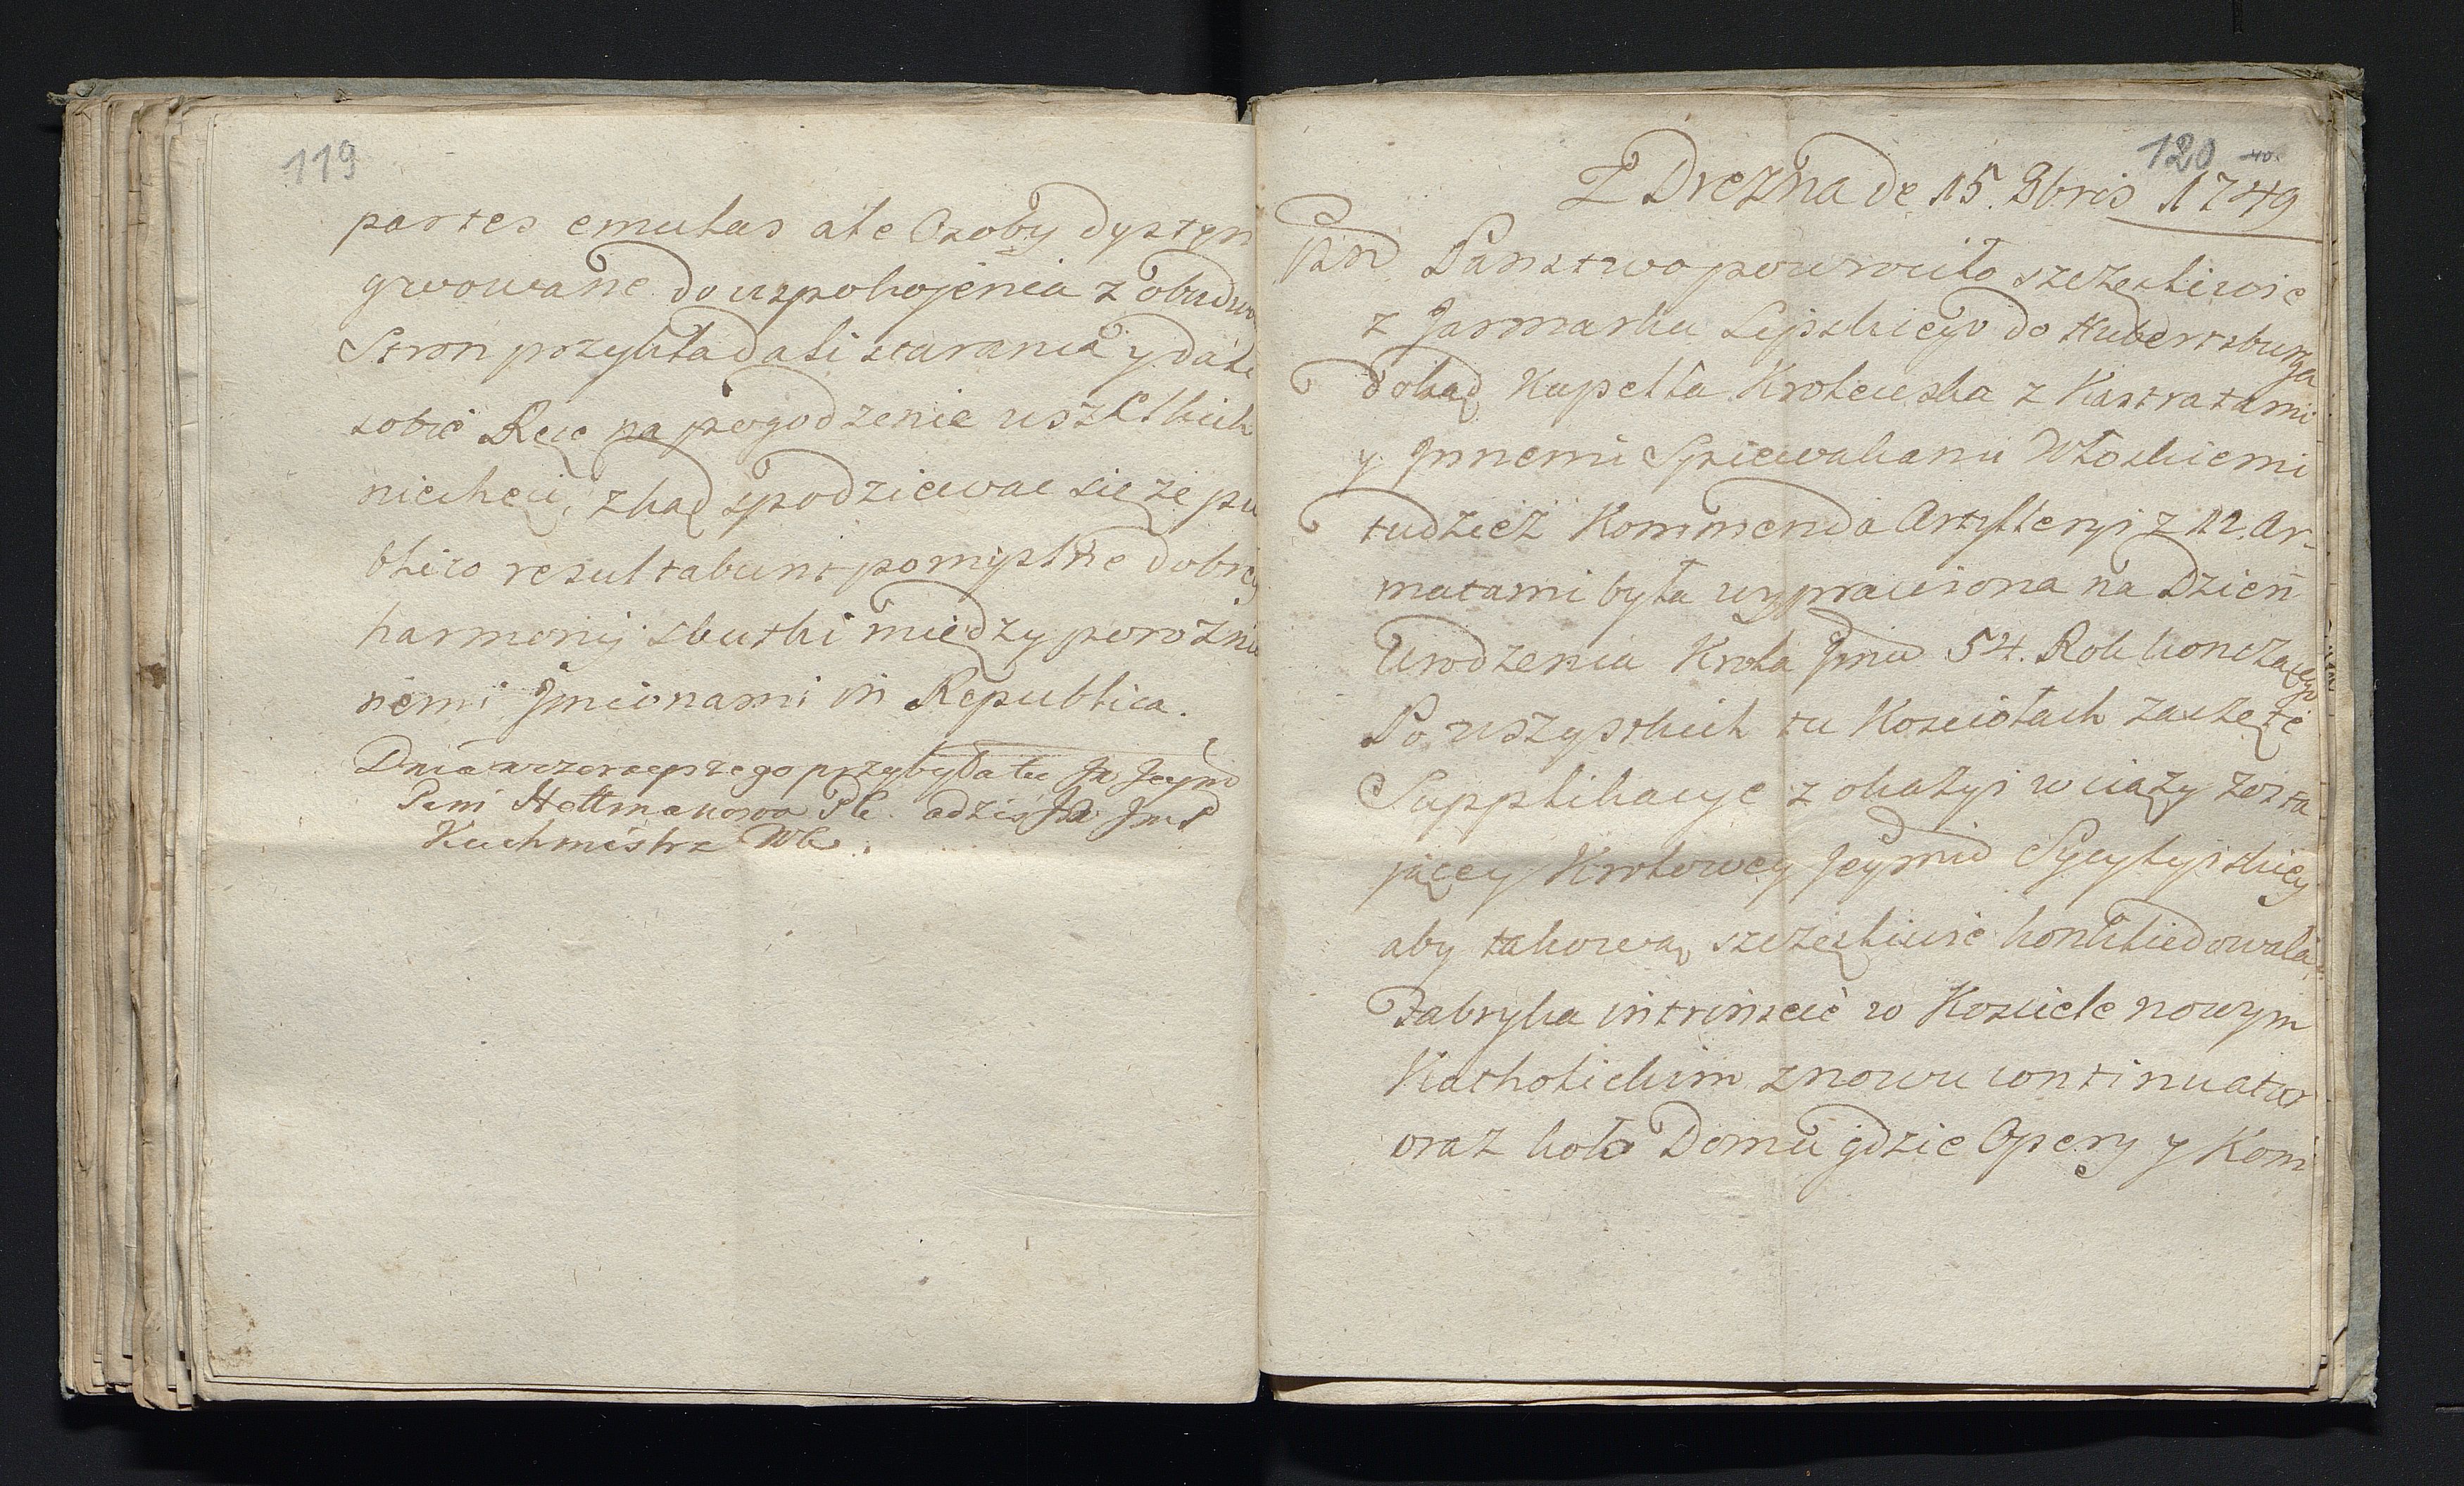 119
partes emulas ale Osoby dystyn
gwowane do uspokojenia z obudwu
Stron przykładali starania y dali
sobie Ręce na pogodzenie wszelkich
niechęci, zkąd spodziewac się że pu
blico resultabunt pomyslne dobrey
harmonij skutki między porożnio
nemi Jmionami in Republica.
Dnia wczorayszego przybyła tu Jw Jeymć
Pani Hetmanowa Pl. a dziś Jw Jmć
Kuchmistrz Wl.
120 40.
Z Drezna de 15. 8bris 1749
Pań Panstwo powrociło szczęsliwie
z Jarmarku Lipskiego do Hubertsburga
dokąd Kapella Krolewska z Kastratami
y Jnnemi Spiewakami Włoskiemi
tudzież Kommenda Artylleryi z 12. Ar-
matami była wyprawiona na Dzień
Urodzenia Krola Jmci 54. Rok konczącego
Po wszystkich tu Kosciołach zaczęte
Supplikacye z okazyi w ciąży zosta
jącey Krolowey Jeymci Sycylyiskiey
aby takową szczęsliwie
Fabryka intrinsece w Kosciele nowym
Katholickim znowu continuatur
oraz koło Domu gdzie Opery y Kom